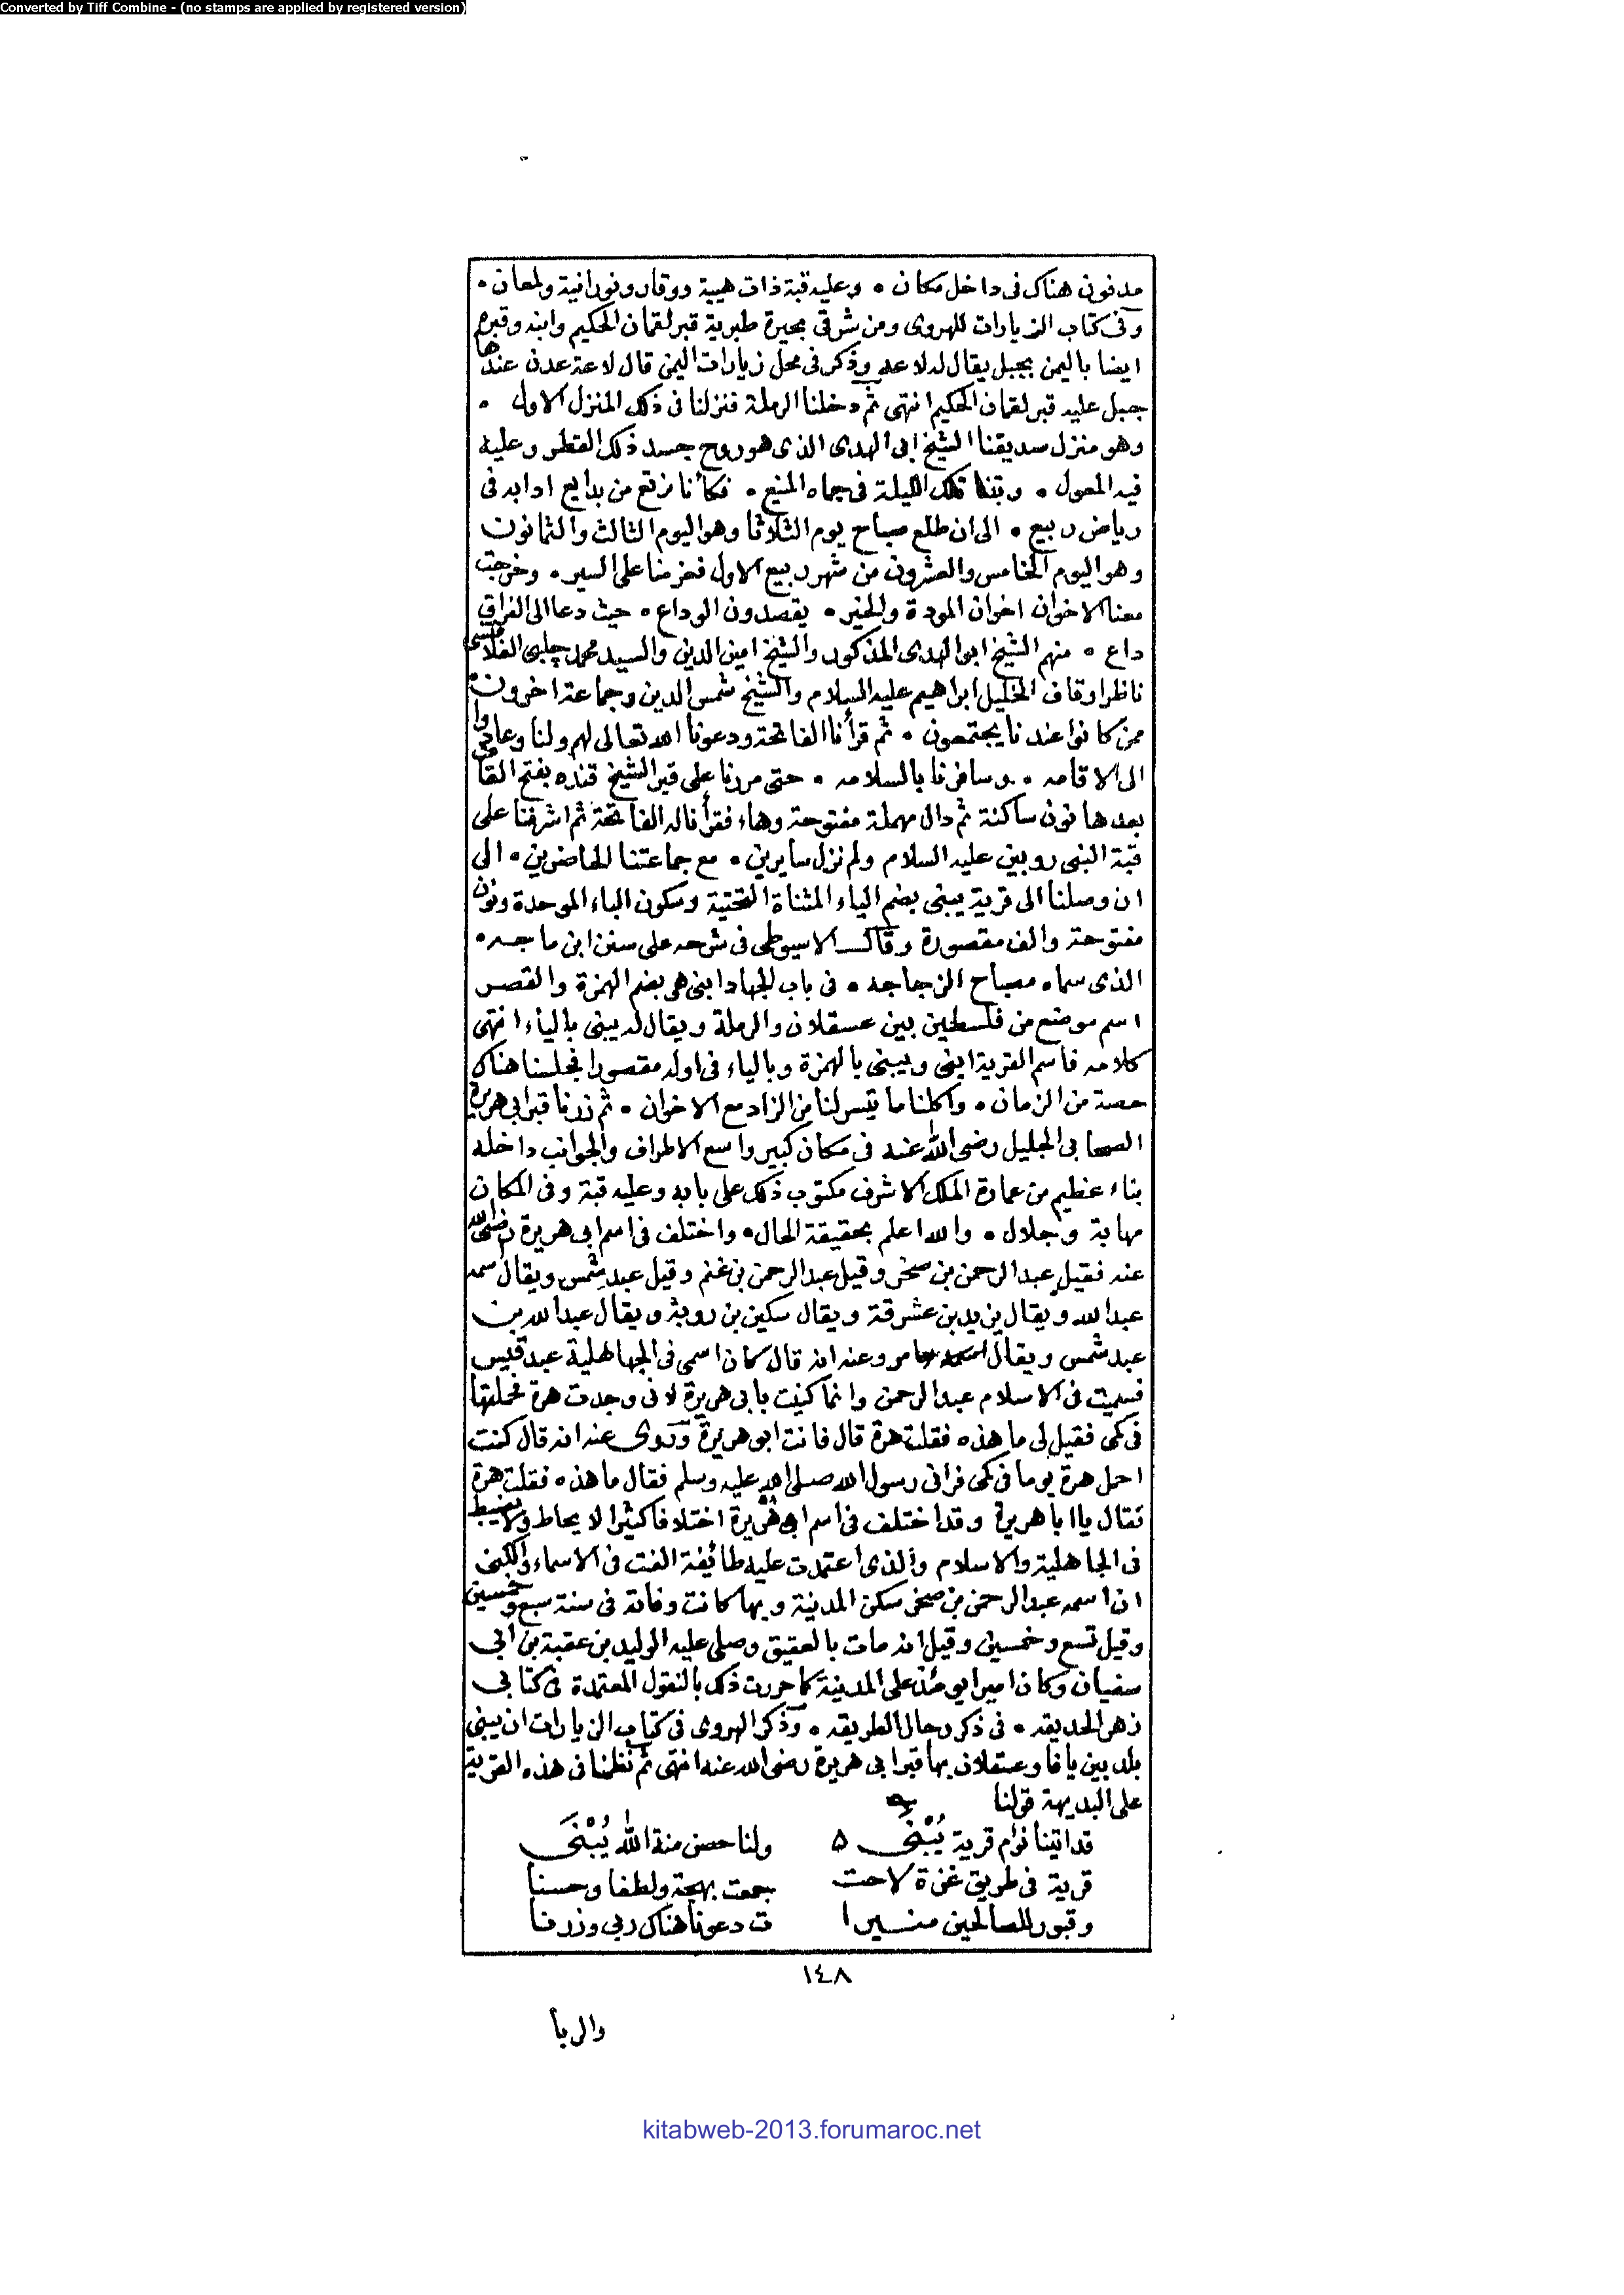 Converted by Tiff Combine - (no stamps are applied by registered version)
مدفون هناك فى داخل مكان ۰ وعليه قبة ذات هيبة ووقار ونورانية ولمعان ۰
وفى كتاب الزيارات للهروى ومن شرقى بحيرة طبرية قبر لقمان الحكيم وابنه وقبره
ايضا باليمن بجبل يقال له لاعه وذكر فى محل زيارات اليمن قال لاعة عدن عندها
جبل عليه قبر لقمان الحكيم انتهى ثم دخلنا الرملة فنزلنا فى ذلك المنزل الاول ۰
وهو منزل صديقنا الشيخ ابى الهدى الذى هو روح جسد ذلك القطر وعليه
فيه المعول ۰ وبتنا تلك الليلة فى حماه المنيع ۰ فكأنا نرتع من بدايع ادابه فى
رياض ربيع ۰ الى ان طلع صباح يوم الثلاثا وهو اليوم الثالث والثمانون
وهو اليوم الخامس والعشرون من شهر ربيع الاول فعزمنا على السير ۰ وخرجت
معنا الاخوان اخوان المودة والخير ۰ يقصدون الوداع ۰ حيث دعا الى الفراق
داع ۰ منهم الشيخ ابو الهدى المذكور والشيخ امين الدين والسيد محمد چلبى
ناظر اوقاف الخليل ابراهيم عليه السلام والشيخ شمس الدين وجماعة اخرون
ممن كانوا عندنا يجتمعون ۰ ثم قرأنا الفاتحة ودعونا الله تعالى لهم ولنا وعادوا
الى الاقامه ۰ وسافرنا بالسلامه ۰ حتى مررنا على قبر الشيخ قنده بفتح القاف
بعدها نون ساكنة ثم دال مهملة مفتوحة وهاء فقرأنا له الفاتحة ثم اشرفنا على
قبة النبى روبين عليه السلام ولم نزل سايرين ۰ مع جماعتنا الحاضرين ۰ الى
ان وصلنا الى قرية يبنى بضم الياء المثناة التحتية وسكون الباء الموحدة ونون
مفتوحة والف مقصورة وقال الاسيوطى فى شرحه على سنن ابن ماجه ۰
الذى سماه مصباح الزجاجه ۰ فى باب الجهاد ابنى هى بضم الهمزة والقصر
اسم موضع من فلسطين بين عسقلان والرملة ويقال له يبنى بالياء انتهى
كلامه فاسم القرية ابنى ويبنى بالهمزة وبالياء فى اوله مقصورا فجلسنا هناك
حصة من الزمان ۰ واكلنا ما تيسر لنا من الزاد مع الاخوان ۰ ثم زرنا قبر ابى هريرة
الصحابى الجليل رضى الله عنه فى مكان كبير واسع الاطراف والجوانب داخله
بناء عظيم من عمارة الملك الاشرف مكتوب ذلك على بابه وعليه قبة وفى المكان
مهابة وجلال ۰ والله اعلم بحقيقة الحال ۰ واختلف فى اسم ابى هريرة رضى الله
عنه فقيل عبد الرحمن بن صخر وقيل عبد الرحمن بن غنم وقيل عبد شمس ويقال اسمه
عبد الله ويقال يزيد بن عشرقة ويقال سكين بن رويثه ويقال عبد الله بن
عبد شمس ويقال عامر وعنه انه قال كان اسمى فى الجاهلية عبد قيس
فسميت فى الاسلام عبد الرحمن وانما كنيت بابى هريرة لانى وجدت هرة فحملتها
فى كمى فقيل لى ما هذه فقلت هرة قال فانت ابو هريرة وروى عنه انه قال كنت
احمل هرة يوما فى كمى فرانى رسول الله صلى الله عليه وسلم فقال ما هذه فقلت هرة
فقال يا ابا هريرة وقد اختلف فى اسم ابى هريرة اختلافا كثيرا لا يحاط ولا يضبط
فى الجاهلية والاسلام والذى اعتمدت عليه طائفة الفت فى الاسماء والكنى
ان اسمه عبد الرحمن بن صخر سكن المدينة وبها كانت وفاته فى سنة سبع وخمسين
وقيل تسع وخمسين وقيل انه مات بالعقيق وصلى عليه الوليد بن عقبة بن ابى
سفيان وكان اميرا يومئذ على المدينة كما حررت ذلك بالنقول المعتمدة فى كتابى
زهر الحديقه ۰ فى ذكر رجال الطريقه ۰ وذكر الهروى فى كتاب الزيارات ان يبنى
بلد بين يافا وعسقلان بها قبر ابى هريرة رضى الله عنه انتهى ثم نظمنا فى هذه القرية
على البديهة قولنا
قد اتينا نؤم قرية يُبْنَى ولنا حصن منة الله يُبْنَى
قرية فى طريق غزة لاحت جمعت بهجة ولطفا وحسنا
وقبور للصالحين منيرا ت دعونا هناك ربى وزرنا
١٤٨
kitabweb-2013.forumaroc.net